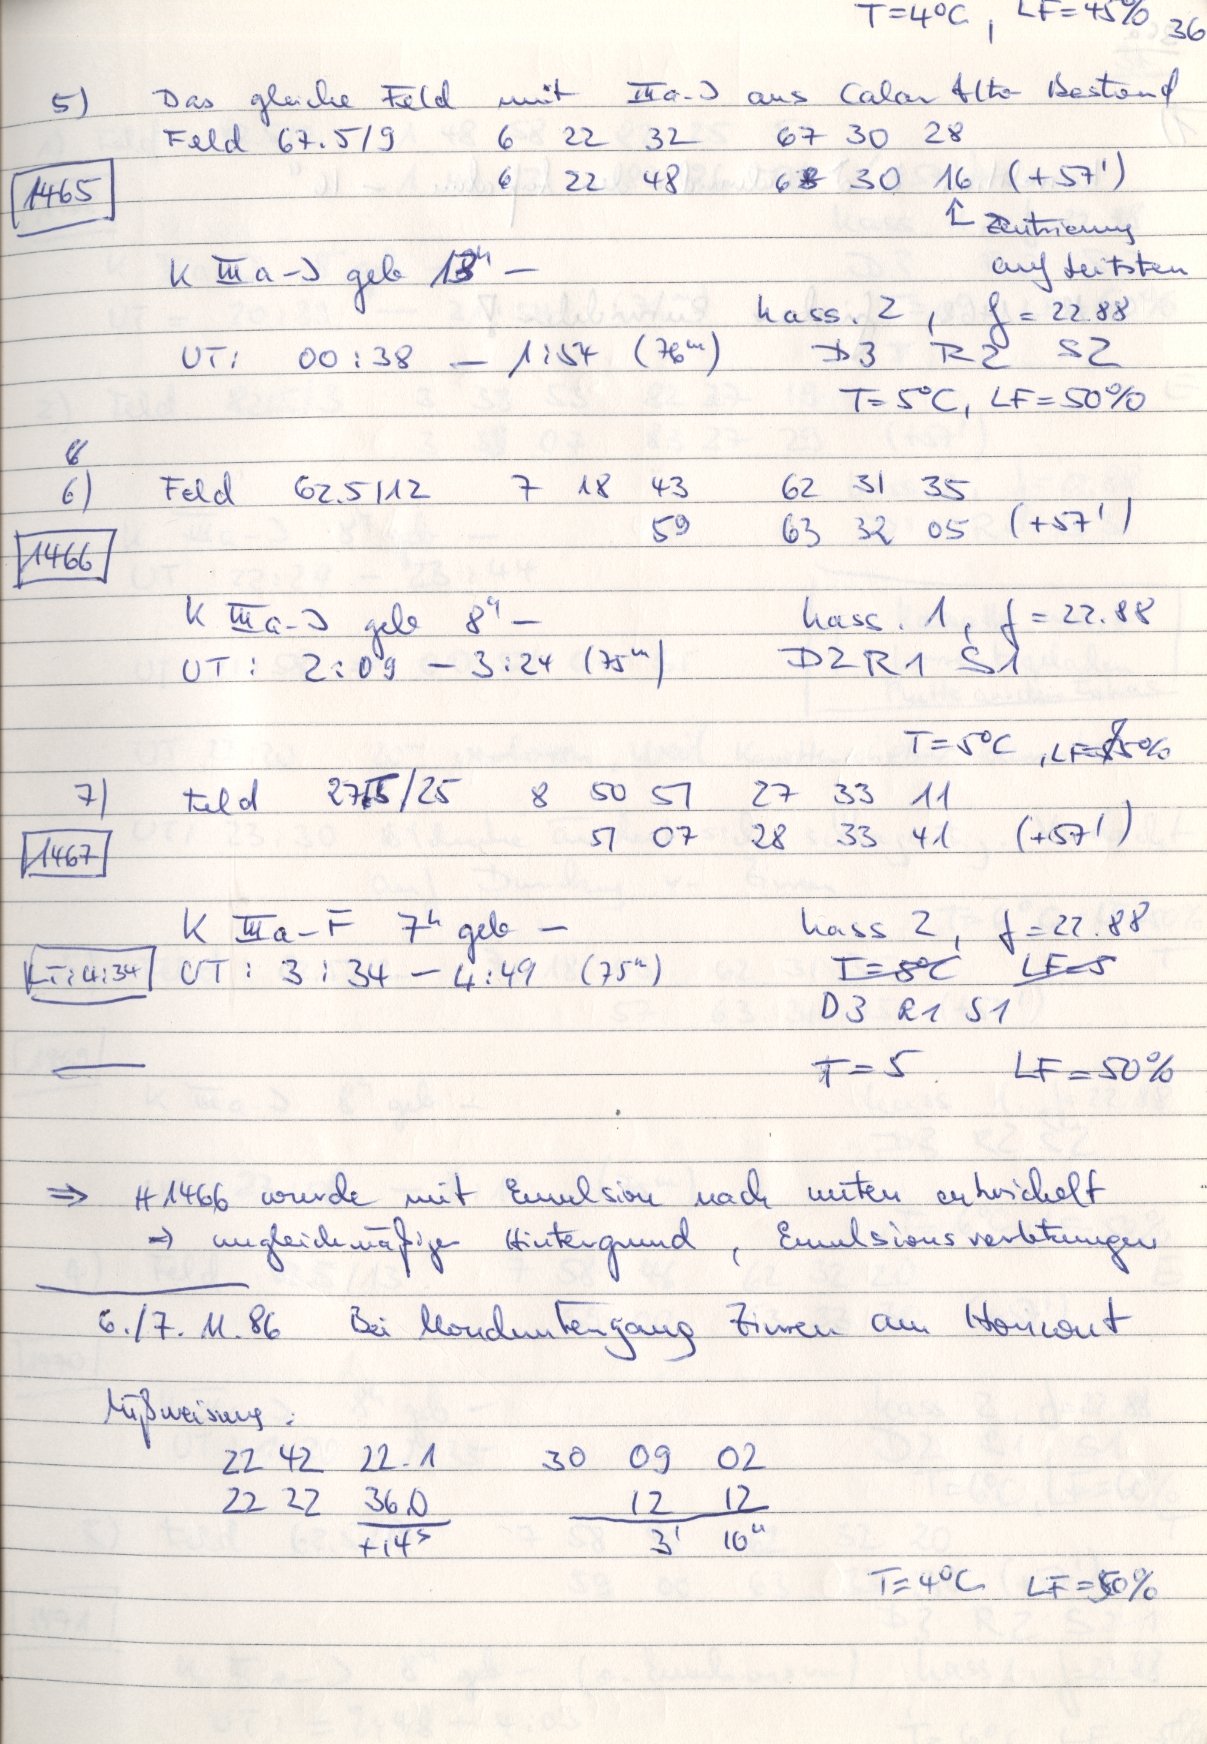 T=4°C, LF=45% 36
5) Das gleiche Feld mit IIIa-J aus Calar Alto Bestand
Feld 67.5/9 6 22 32 67 30 28
1465
6 22 48 68 30 16 (+57')
↑ Zentrierung
auf Leitstern
K IIIa-J geb 8h —
Kass. 2, f = 22.88
UT: 00:38 — 1:54 (76m) D3 R2 S2
T=5°C, LF=50%
6) Feld 62.5/12 7 18 43 62 31 35
59 63 32 05 (+57')
1466
K IIIa-J geb 8h — Kass. 1, f = 22.88
UT: 2:09 — 3:24 (75m) D2 R1 S1
T=5°C, LF=55%
7) Feld 27.5/25 8 50 51 27 33 11
51 07 28 33 41 (+57')
1467
K IIIa-F 7h geb — Kass 2, f = 22.88
LT: 4:34 UT: 3:34 — 4:49 (75m) T=5°C LF=5
D3 R1 S1
T=5 LF=50%
⇒ H1466 wurde mit Emulsion nach unten entwickelt
⇒ ungleichmäßiger Hintergrund, Emulsionsverletzungen
6./7. 11. 86 Bei Monduntergang Zirren am Horizont
Mißweisung:
22 42 22.1 30 09 02
22 22 36.0 12 12
+14s 3' 10"
T=4°C LF=50%